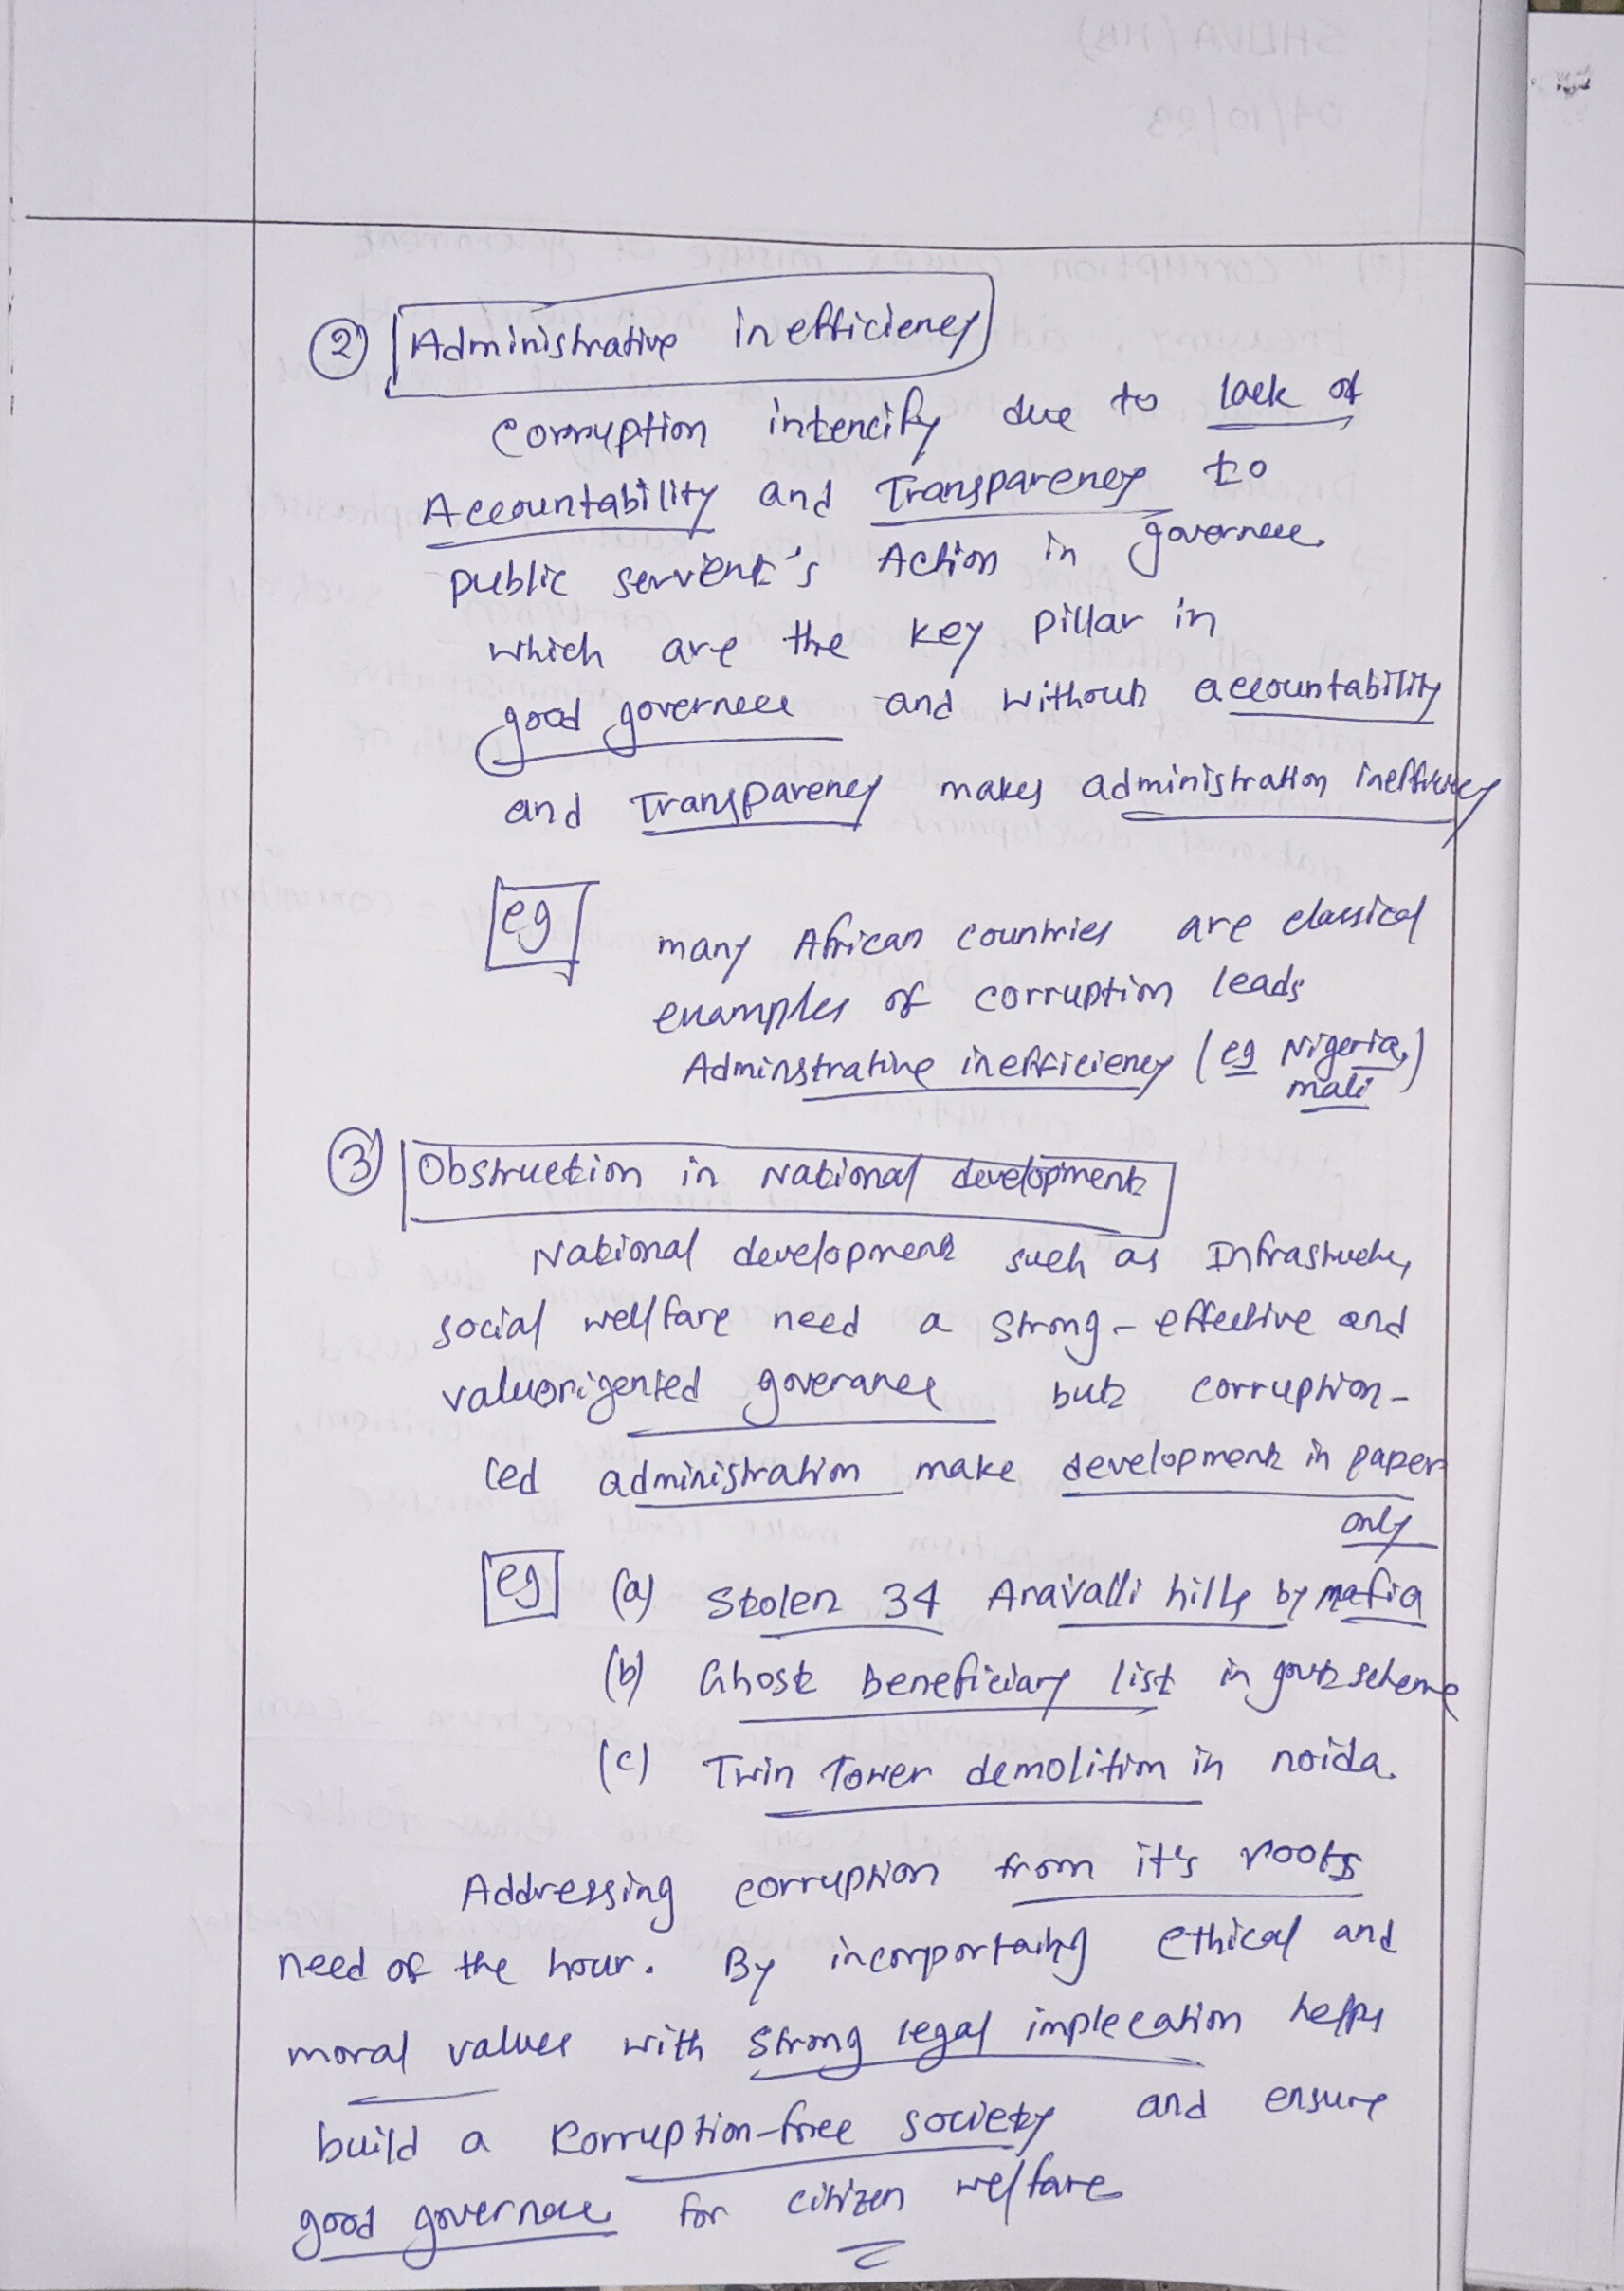 ② Administrative inefficiency
Corruption intencify due to lack of
Accountability and Transparency to
public servient's Action in governece
which are the key pillar in
good governece and without accountability
and Transparency makes administration
eg many African countries are classical
examples of corruption leads
Adminstrative inefficiency (eg Nigeria,
mali)
③ Obstruction in National development
National development such as
social wellfare need a strong-effective and
valueorigented goverance but corruption-
led administration make development in paper
only
eg (a) Stolen 34 Aravalli hills by mafia
(b) Ghost beneficiary list in govt scheme
(c) Twin Tower demolition in noida.
Addressing corruption from it's roots
need of the hour. By ethical and
moral values with strong legal implecation helps
build a Corruption-free society and ensure
good governace for citizen welfare